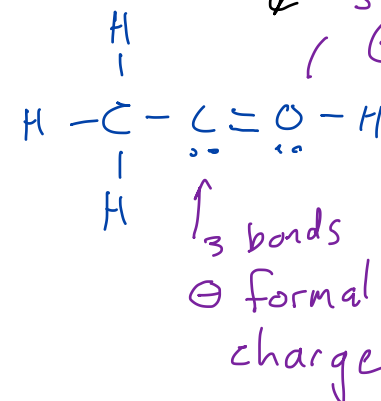 H
H - C - C = O - H
H
3 bonds
⊖ formal
charge